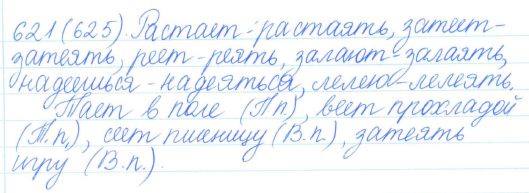 621(625). Растает - растаять, затеет -
затеять, реет - реять, залают - залаять,
надеешься - надеяться, лелею - лелеять.
Тает в поле (П.п), веет прохладой
(Т.п.), сеет пшеницу (В.п.), затеять
игру (В.п.).